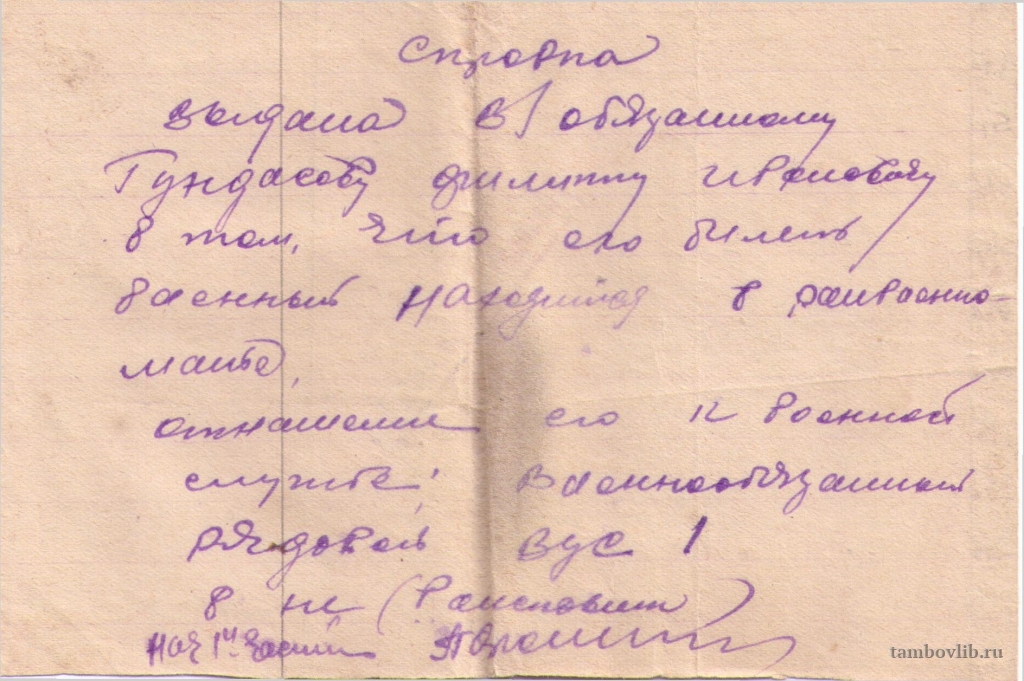 Справка
выдана в/обязанному
Гундасову Филиппу Ивановичу
в том, что его билет
военный находится в райвоенко-
мате,
отношение его к военной
службе: военнообязанный
рядовой ВУС 1
в не (
Нач 1й части
tambovlib.ru